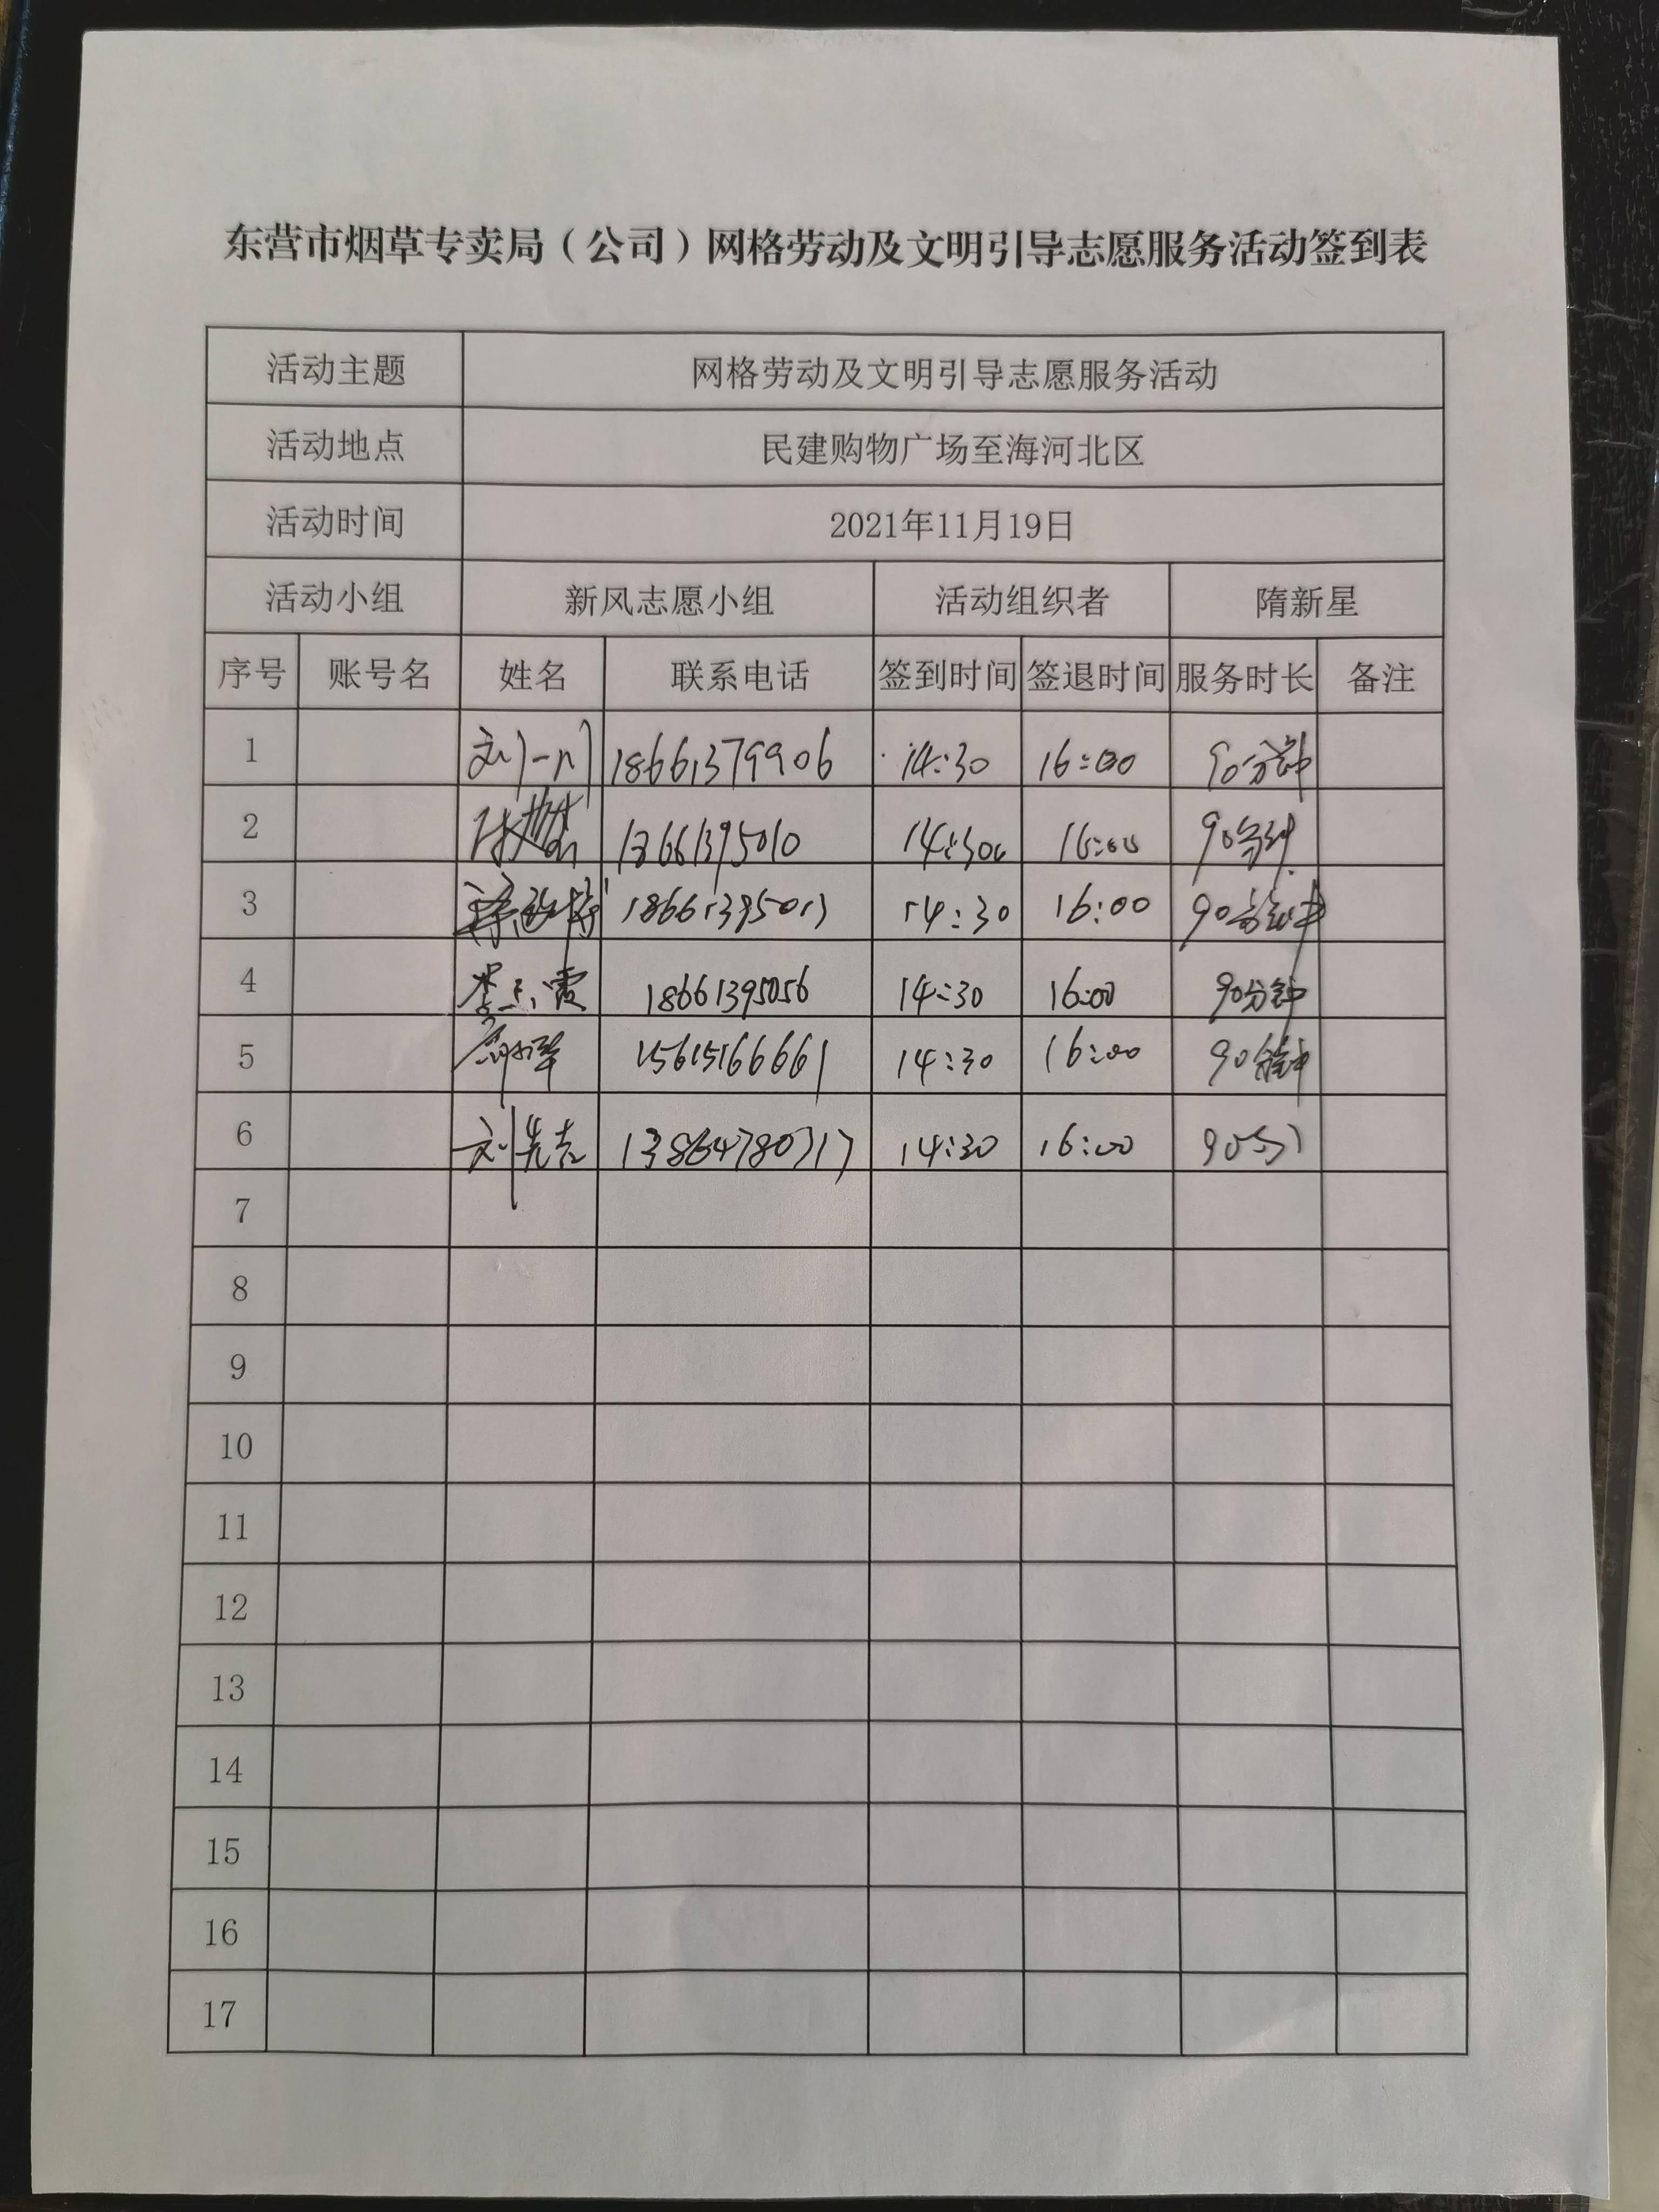 东营市烟草专卖局（公司）网格劳动及文明引导志愿服务活动签到表
活动主题 网格劳动及文明引导志愿服务活动
活动地点 民建购物广场至海河北区
活动时间 2021年11月19日
活动小组 新风志愿小组 活动组织者 隋新星
序号 账号名 姓名 联系电话 签到时间 签退时间 服务时长 备注
1 刘一川 18661379906 14:30 16:00 90分钟
2 14:30 16:00 90分钟
3 18661395013 14:30 16:00 90分钟
4 18661395056 14:30 16:00 90分钟
5 15615166661 14:30 16:00 90分钟
6 刘先志 13864780717 14:30 16:00 90分
7
8
9
10
11
12
13
14
15
16
17